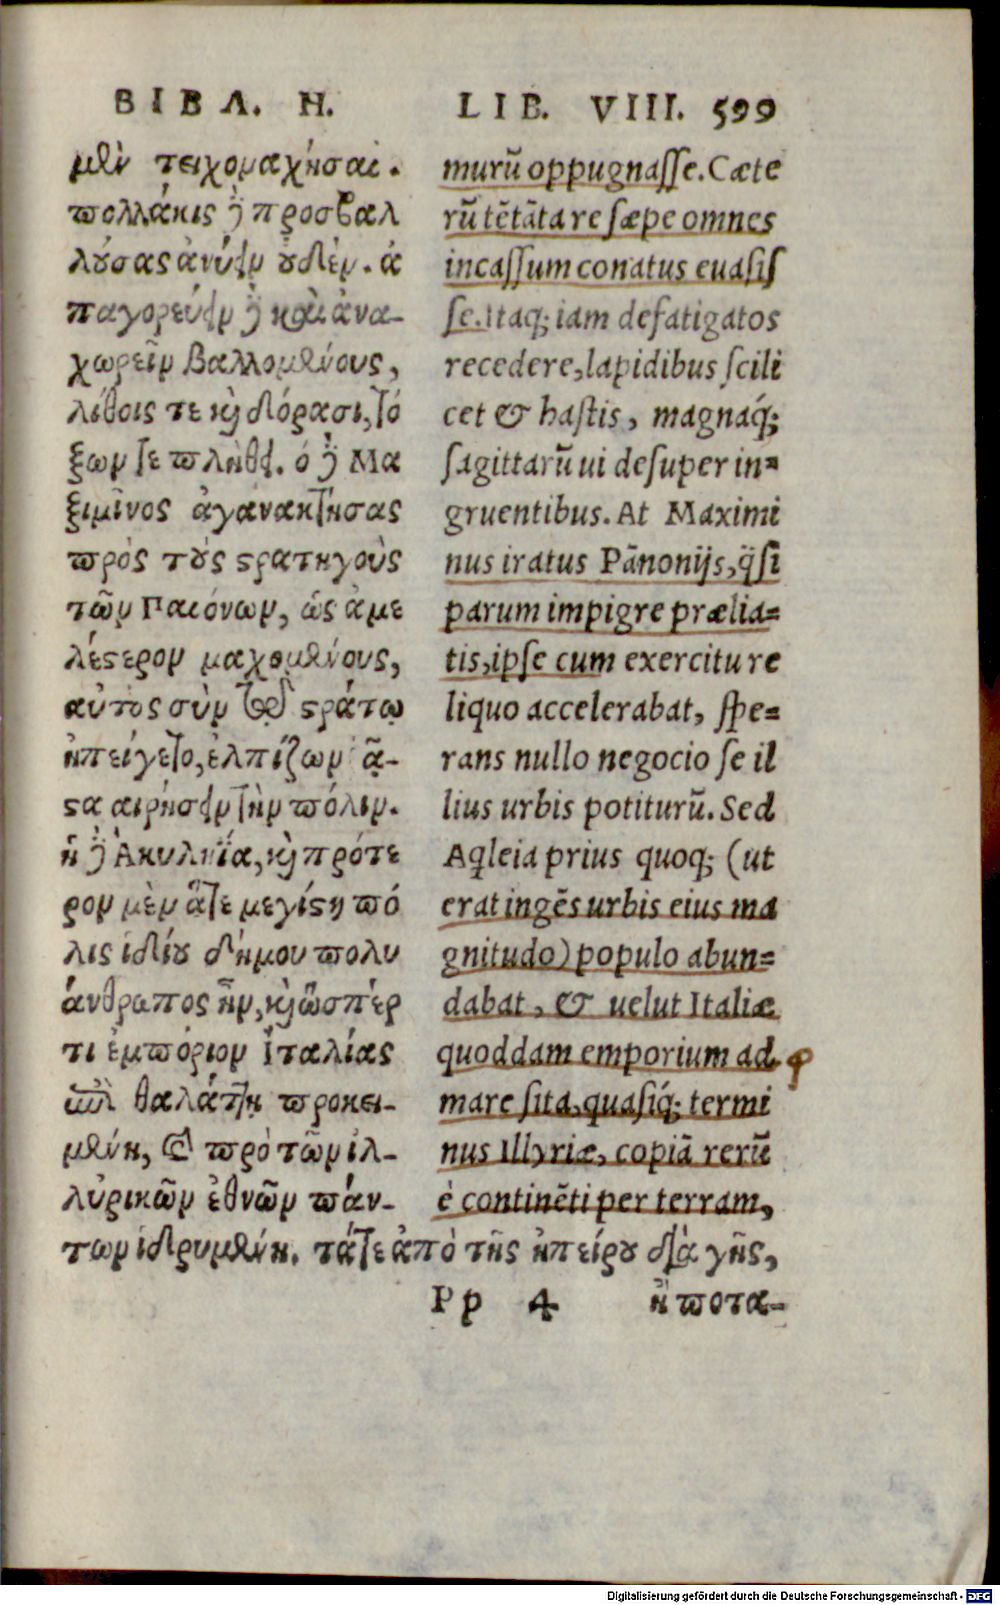 ΒΙΒΛ. Η.
μὲν τειχομαχῆσαι.
πολλάκις δὲ προσβαλ
λούσας ἀνύειν οὐδέν. ἀ
παγορεύειν δὲ καὶ ἀνα-
χωρεῖν βαλλομένους,
λίθοις τε κỳ δόρασι, τό
ξων τε πλήθει. ὁ δὲ Μα
ξιμῖνος ἀγανακτήσας
πρὸς τοὺς ϛρατηγοὺς
τῶν Παιόνων, ὡς ἀμε
λέϛερον μαχομένους,
αὐτὸς σὺν τῷ ϛράτῳ
ἠπείγετο, ἐλπίζων ῥᾷ-
ϛα αἱρήσειν τὴν πόλιν.
ἡ δὲ Ἀκυληΐα, κỳ πρότε
ρον μὲν ἅτε μεγίϛη πό
λις ἰδίου δήμου πολυ
άνθρωπος ἦν, κỳ ὥσπέρ
τι ἐμπόριον Ἰταλίας
ἐπὶ θαλάττῃ προκει-
μένη, καὶ πρὸ τῶν ἰλ-
λυρικῶν ἐθνῶν πάν-
των ἱδρυμένη. τάτε ἀπὸ τῆς ἠπείρου διὰ γῆς,
LIB. VIII. 599
murū oppugnaſſe. Cæte
rū tētāta re ſæpe omnes
incaſſum conatus euaſiſ
ſe. Itaq; iam defatigatos
recedere, lapidibus ſcili
cet & haſtis, magnaq́;
ſagittarū ui deſuper in=
gruentibus. At Maximi
nus iratus Pānonijs, q̈ſi
parum impigre prælia=
tis, ipſe cum exercitu re
liquo accelerabat, ſpe=
rans nullo negocio ſe il
lius urbis potiturū. Sed
Aqleia prius quoq; (ut
erat ingēs urbis eius ma
gnitudo) populo abun=
dabat, & uelut Italiæ
quoddam emporium ad
mare ſita, quaſiq́; termi
nus Illyriæ, copiā rerū
è continēti per terram,
Pp 4 ἢ ποτα-
Digitalisierung gefördert durch die Deutsche Forschungsgemeinschaft - DFG